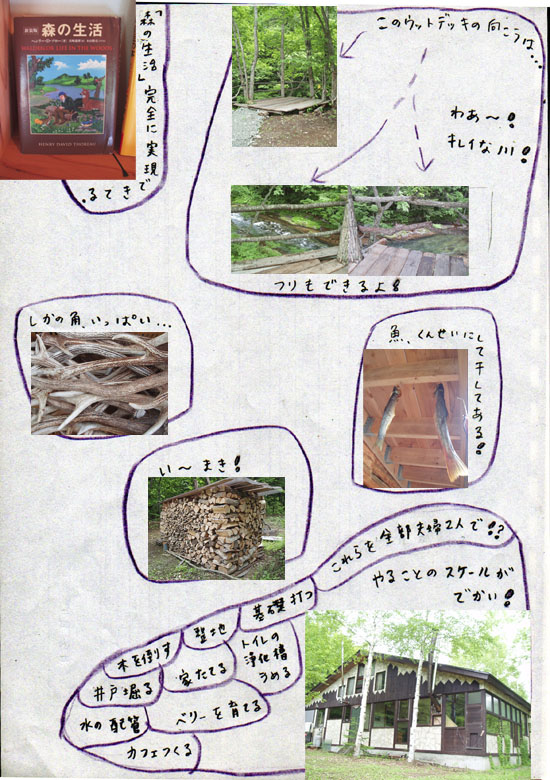 新装版 森の生活
ヘンリー・D・ソロー/著
WALDEN OR LIFE IN THE WOODS
HENRY DAVID THOREAU
「森の生活」完全に実現
できてる.
このウットデッキの向こうは...
わあ〜!
キレイな川!
フリもできるよ!
しかの角、いっぱい...
魚、くんせいに
して干してある!
い〜まき!
これらを全部夫婦2人で!?
やることのスケールが
でかい!
基礎打つ
整地
木を倒す
トイレの
浄化槽
うめる
家たてる
井戸掘る
ベリーを育てる
水の配管
カフェつくる